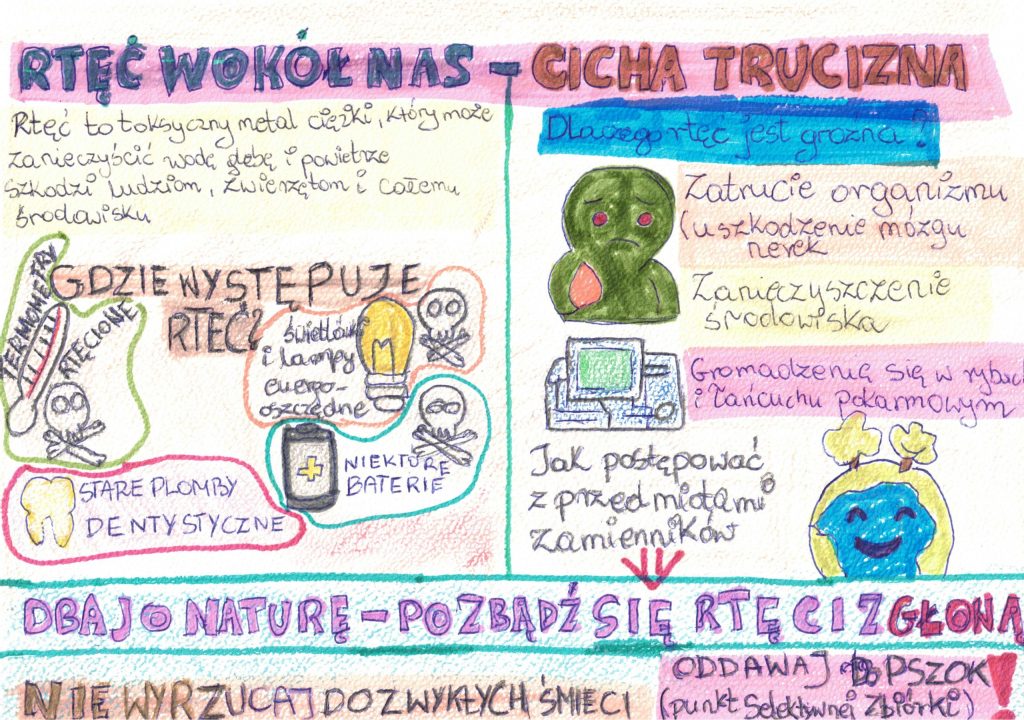 RTĘĆ WOKÓŁ NAS – CICHA TRUCIZNA
Rtęć to toksyczny metal ciężki, który może
zanieczyścić wodę glebę i powietrze
szkodzi ludziom, zwierzętom i całemu
środowisku
GDZIE WYSTĘPUJE
RTĘĆ?
TERMOMETRY
RTĘCIONE
świetlówki
i lampy
energo-
oszczędne
NIEKTURE
BATERIE
STARE PLOMBY
DENTYSTYCZNE
Dlaczego rtęć jest groźna?
Zatrucie organizmu
(uszkodzenie mózgu
nerek
Zanięczyszczenie
środowiska
Gromadzenią się w rybach
i łańcuchu pokarmowym
Jak postępować
z przedmiotami
zamienników
DBAJ O NATURĘ – POZBĄDŹ SIĘ RTĘCI Z GŁONĄ
NIE WYRZUCAJ DO ZWYKŁYCH ŚMIECI
ODDAWAJ do PSZOK!
(punkt Selektywnej Zbiórki)